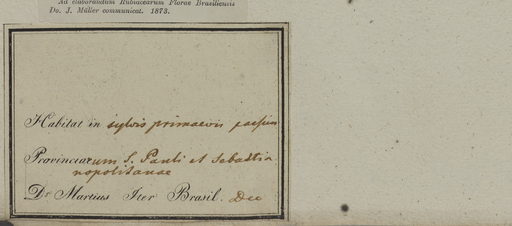 Ad elaborandum Rubiacearum Florae Brasiliensis
Do. J. Müller communicat. 1873.
Habitat in sylvis primaevis passim
Provinciarum S. Pauli et Sebastia-
nopolitanae
Dr. Martius Iter Brasil. Dec